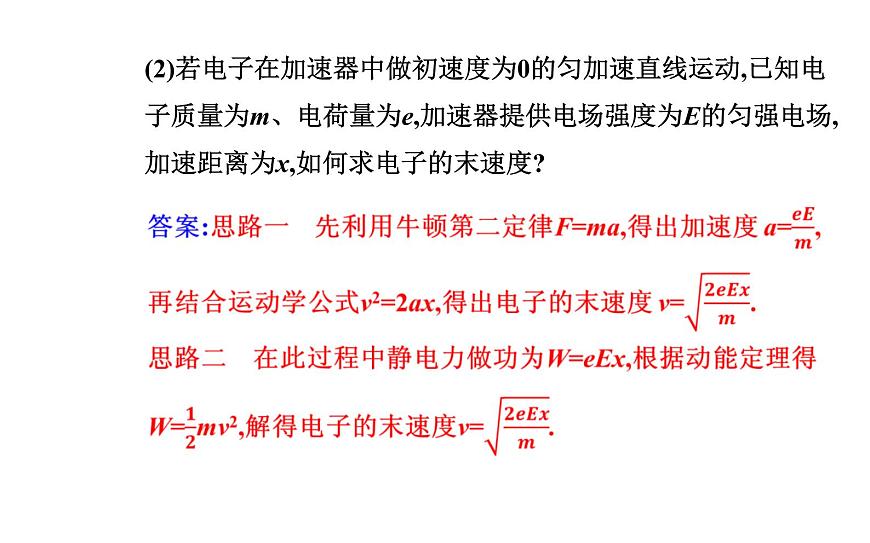 (2)若电子在加速器中做初速度为0的匀加速直线运动,已知电
子质量为m、电荷量为e,加速器提供电场强度为E的匀强电场,
加速距离为x,如何求电子的末速度?
答案:思路一　先利用牛顿第二定律F=ma,得出加速度 a=eE/m,
再结合运动学公式v²=2ax,得出电子的末速度 v=√(2eEx/m).
思路二　在此过程中静电力做功为W=eEx,根据动能定理得
W=1/2mv²,解得电子的末速度v=√(2eEx/m).